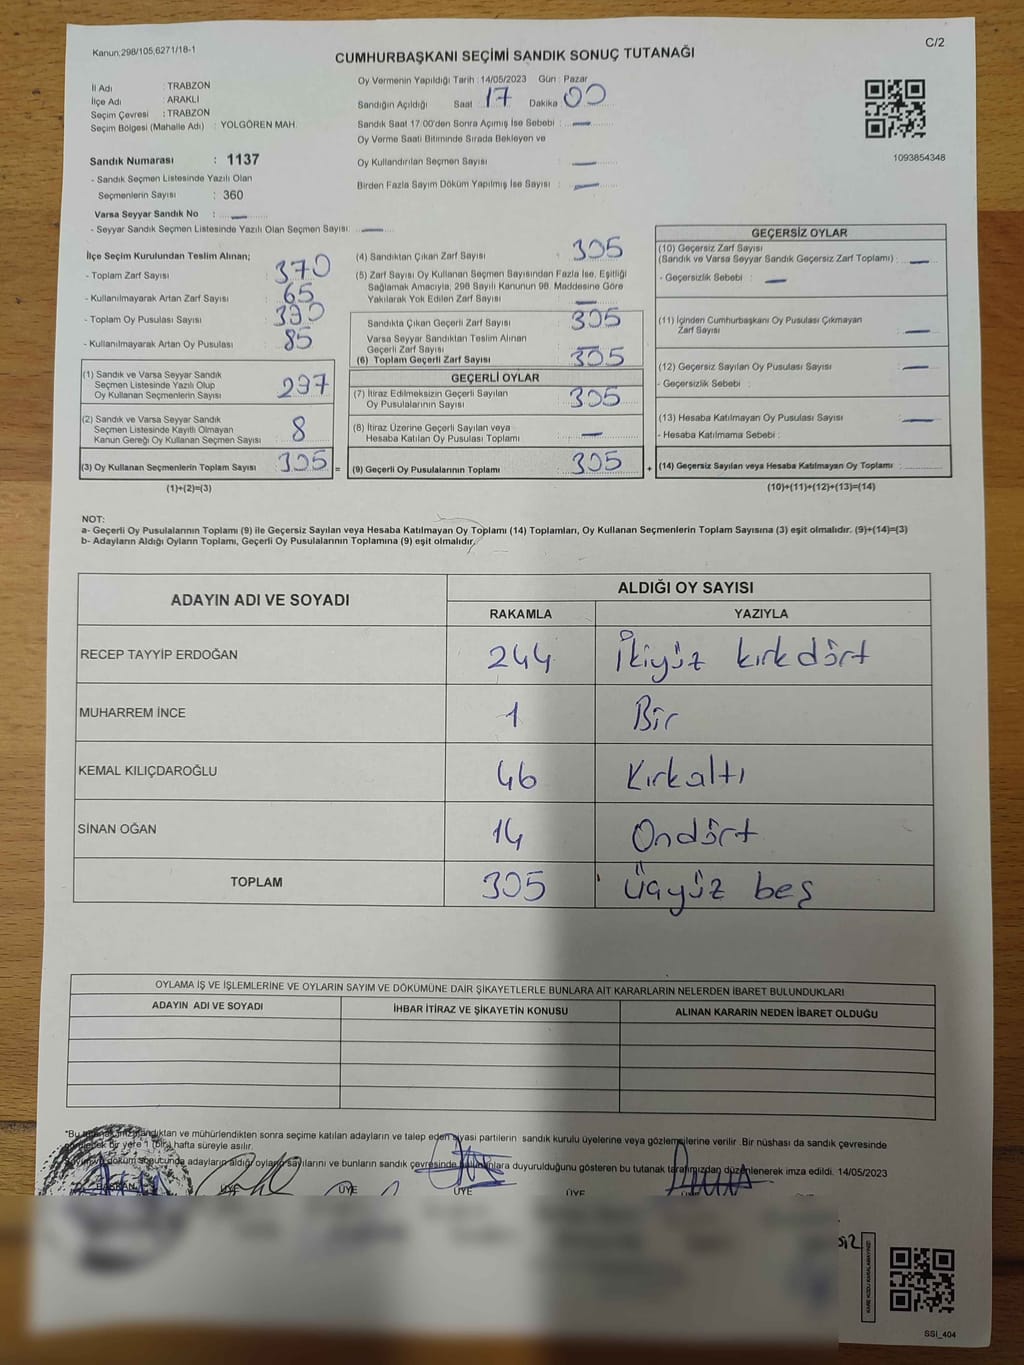 Kanun;298/105,6271/18-1
C/2
CUMHURBAŞKANI SEÇİMİ SANDIK SONUÇ TUTANAĞI
Oy Vermenin Yapıldığı Tarih : 14/05/2023 Gün : Pazar
İl Adı : TRABZON
İlçe Adı : ARAKLI
Seçim Çevresi : TRABZON
Seçim Bölgesi (Mahalle Adı) : YOLGÖREN MAH.
Sandığın Açıldığı Saat : 17 Dakika : 00
Sandık Saat 17.00'den Sonra Açımış İse Sebebi : —
Oy Verme Saati Bitiminde Sırada Bekleyen ve
Oy Kullandırılan Seçmen Sayısı —
Birden Fazla Sayım Döküm Yapılmış İse Sayısı : —
1093854348
Sandık Numarası : 1137
- Sandık Seçmen Listesinde Yazılı Olan
Seçmenlerin Sayısı : 360
Varsa Seyyar Sandık No : —
- Seyyar Sandık Seçmen Listesinde Yazılı Olan Seçmen Sayısı: —
İlçe Seçim Kurulundan Teslim Alınan;
- Toplam Zarf Sayısı : 370
- Kullanılmayarak Artan Zarf Sayısı : 65
- Toplam Oy Pusulası Sayısı : 390
- Kullanılmayarak Artan Oy Pusulası : 85
(1) Sandık ve Varsa Seyyar Sandık
Seçmen Listesinde Yazılı Olup
Oy Kullanan Seçmenlerin Sayısı : 297
(2) Sandık ve Varsa Seyyar Sandık
Seçmen Listesinde Kayıtlı Olmayan
Kanun Gereği Oy Kullanan Seçmen Sayısı : 8
(3) Oy Kullanan Seçmenlerin Toplam Sayısı : 305 =
(1)+(2)=(3)
(4) Sandıktan Çıkan Zarf Sayısı : 305
(5) Zarf Sayısı Oy Kullanan Seçmen Sayısından Fazla İse, Eşitliği
Sağlamak Amacıyla, 298 Sayılı Kanunun 98. Maddesine Göre
Yakılarak Yok Edilen Zarf Sayısı : —
Sandıkta Çıkan Geçerli Zarf Sayısı : 305
Varsa Seyyar Sandıktan Teslim Alınan
Geçerli Zarf Sayısı : —
(6) Toplam Geçerli Zarf Sayısı : 305
GEÇERLİ OYLAR
(7) İtiraz Edilmeksizin Geçerli Sayılan
Oy Pusulalarının Sayısı : 305
(8) İtiraz Üzerine Geçerli Sayılan veya
Hesaba Katılan Oy Pusulası Toplamı : —
(9) Geçerli Oy Pusulalarının Toplamı : 305 +
GEÇERSİZ OYLAR
(10) Geçersiz Zarf Sayısı
(Sandık ve Varsa Seyyar Sandık Geçersiz Zarf Toplamı) : —
- Geçersizlik Sebebi : —
(11) İçinden Cumhurbaşkanı Oy Pusulası Çıkmayan
Zarf Sayısı : —
(12) Geçersiz Sayılan Oy Pusulası Sayısı : —
- Geçersizlik Sebebi :
(13) Hesaba Katılmayan Oy Pusulası Sayısı : —
- Hesaba Katılmama Sebebi :
(14) Geçersiz Sayılan veya Hesaba Katılmayan Oy Toplamı :
(10)+(11)+(12)+(13)=(14)
NOT:
a- Geçerli Oy Pusulalarının Toplamı (9) ile Geçersiz Sayılan veya Hesaba Katılmayan Oy Toplamı (14) Toplamları, Oy Kullanan Seçmenlerin Toplam Sayısına (3) eşit olmalıdır. (9)+(14)=(3)
b- Adayların Aldığı Oyların Toplamı, Geçerli Oy Pusulalarının Toplamına (9) eşit olmalıdır.
ADAYIN ADI VE SOYADI ALDIĞI OY SAYISI
RAKAMLA YAZIYLA
RECEP TAYYİP ERDOĞAN 244 İkiyüz kırkdört
MUHARREM İNCE 1 Bir
KEMAL KILIÇDAROĞLU 46 Kırkaltı
SİNAN OĞAN 14 Ondört
TOPLAM 305 Üçyüz beş
OYLAMA İŞ VE İŞLEMLERİNE VE OYLARIN SAYIM VE DÖKÜMÜNE DAİR ŞİKAYETLERLE BUNLARA AİT KARARLARIN NELERDEN İBARET BULUNDUKLARI
ADAYIN ADI VE SOYADI İHBAR İTİRAZ VE ŞİKAYETİN KONUSU ALINAN KARARIN NEDEN İBARET OLDUĞU
ve mühürlendikten sonra seçime katılan adayların ve talep eden siyasi partilerin sandık kurulu üyelerine veya gözlemcilerine verilir .Bir nüshası da sandık çevresinde
bir yere 1 (bir) hafta süreyle asılır.
döküm sonucunda adayların aldığı oyların sayılarını ve bunların sandık çevresinde bulunanlara duyurulduğunu gösteren bu tutanak tarafımızdan düzenlenerek imza edildi. 14/05/2023
BAŞKAN ÜYE ÜYE ÜYE ÜYE
KARE KODU KARALAMAYINIZ!
SSI_404